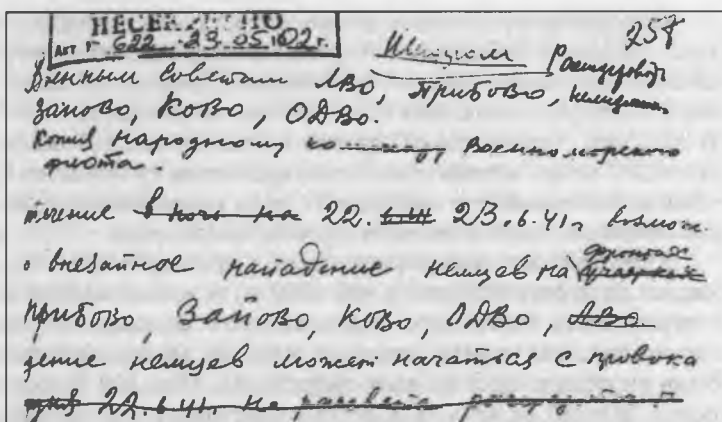 НЕСЕКРЕТНО
АКТ № 622 23.05.02 г.
258
Шифром Расшифровать немедленно
Военным Советам ЛВО, ПрибОВО,
ЗапОВО, КОВО, ОДВО.
Копия народному Военно-морского
флота.
течение в ночь на 22. 23.6.41 г. возмож
о внезапное нападение немцев на фронтах
ПрибОВО, ЗапОВО, КОВО, ОДВО, ЛВО
дение немцев может начаться с провока
22.6.41 г. на рассвете